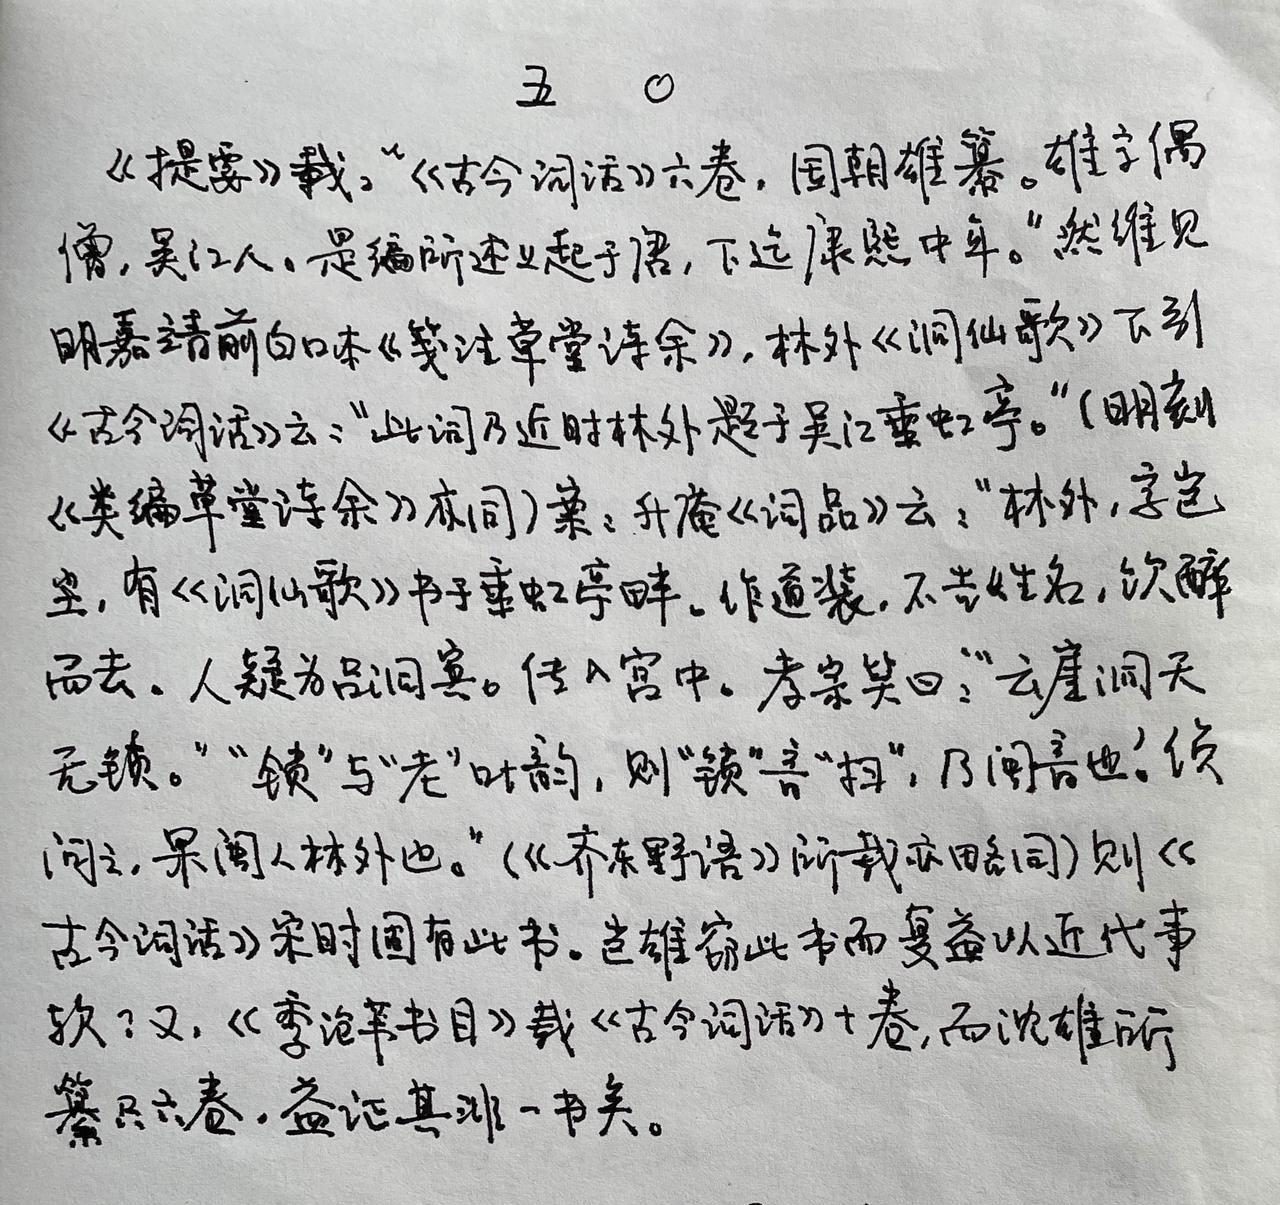 五 〇
《提要》载:“《古今词话》六卷,国朝雄纂。雄字偶
僧,吴江人。是编所述上起于唐,下迄康熙中年。”然维见
明嘉靖前白口本《笺注草堂诗余》,林外《洞仙歌》下引
《古今词话》云:“此词乃近时林外题于吴江垂虹亭。”(明刻
《类编草堂诗余》亦同)案:升庵《词品》云:“林外,字岂
尘,有《洞仙歌》书于垂虹亭畔。作道装,不告姓名,饮醉
而去。人疑为吕洞宾。传入宫中。孝宗笑曰:“‘云崖洞天
无锁。’“锁”与“老”叶韵,则“锁”音“扫”,乃闽音也。’侦
问之,果闽人林外也。”(《齐东野语》所载亦略同)则《
古今词话》宋时固有此书。岂雄窃此书而复益以近代事
欤?又,《季沧苇书目》载《古今词话》十卷,而沈雄所
纂只六卷,益证其非一书矣。